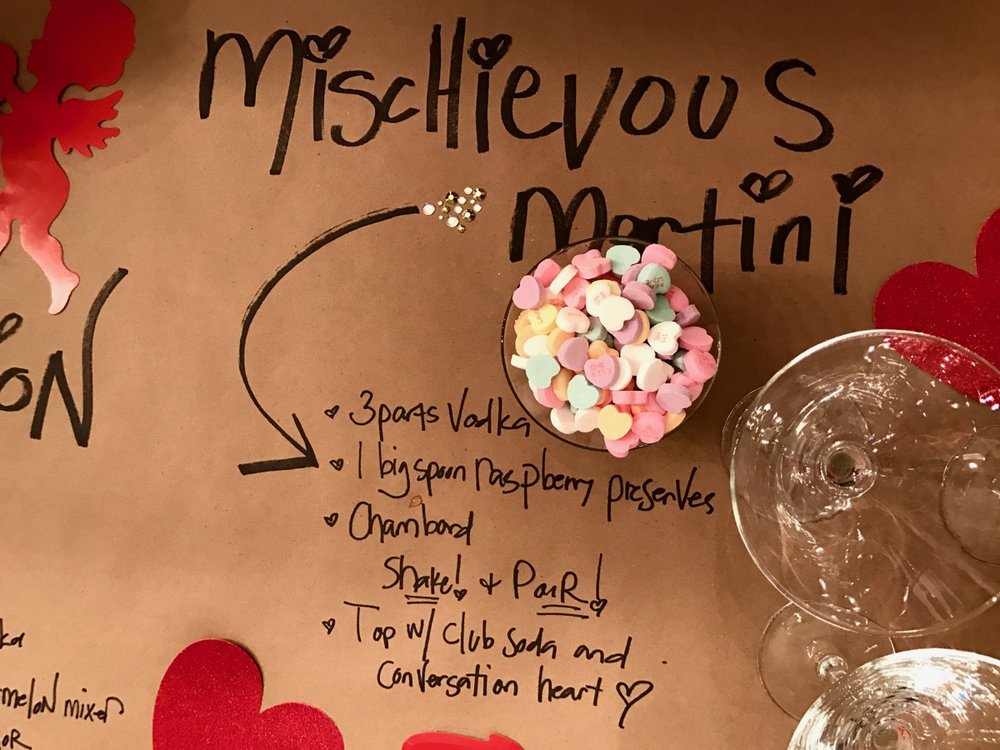 MiscHievous
Martini
ON
3 parts Vodka
1 big spoon raspberry preserves
Chambord
Shake! + PouR!
Top w/ club soda and
conversation heart
ka
melon mixer
OR